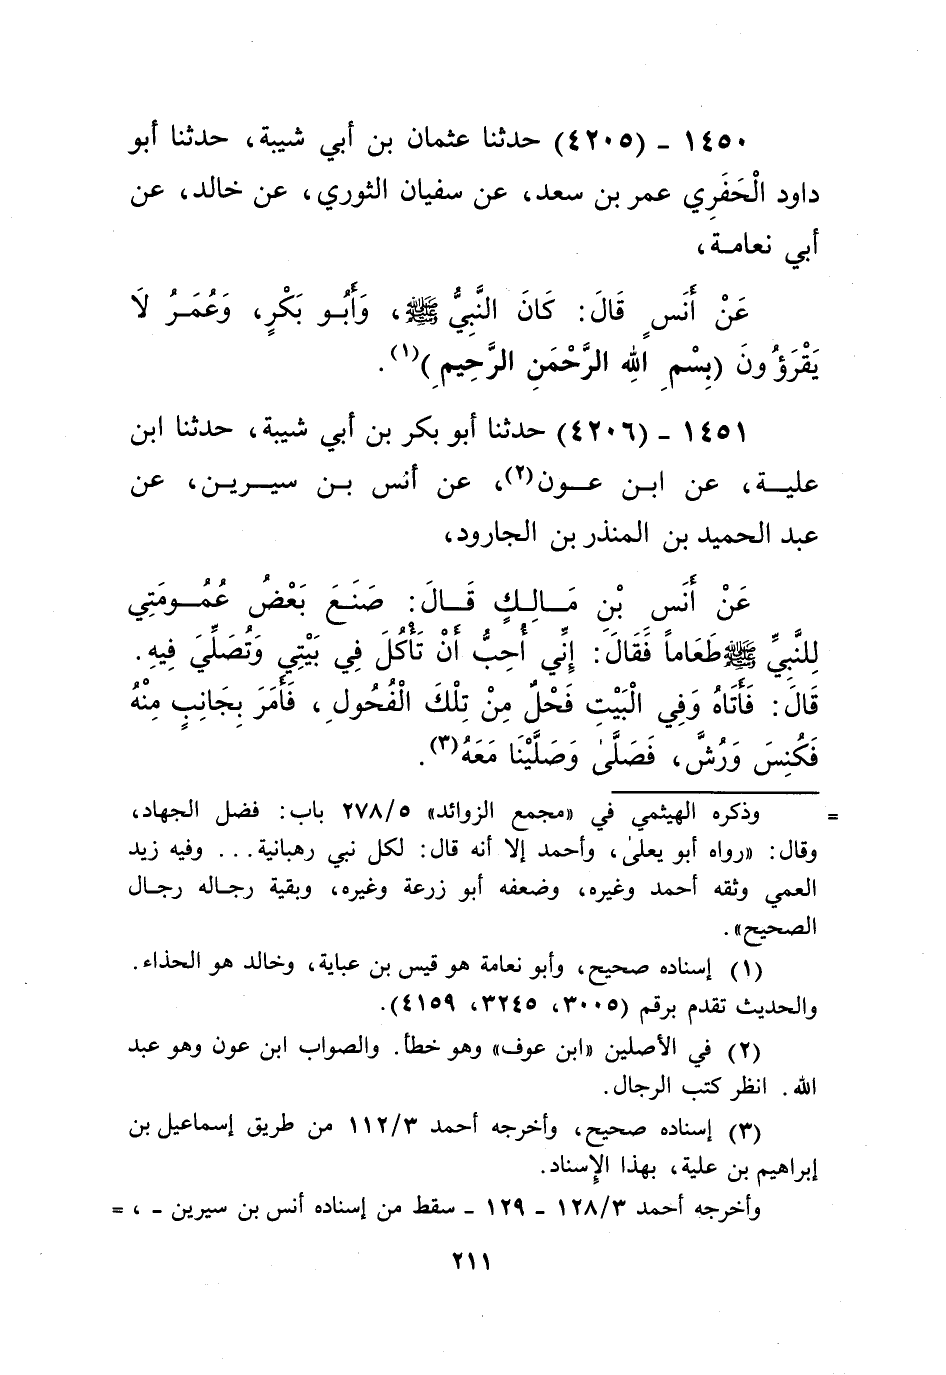 ١٤٥٠ - (٤٢٠٥) حدثنا عثمان بن أبي شيبة، حدثنا أبو
داود الْحَفَرِي عمر بن سعد، عن سفيان الثوري، عن خالد، عن
أبي نعامة،
عَنْ أَنَسٍ قَالَ: كَانَ النَّبِيُّ ﷺ، وَأَبُو بَكْرٍ، وَعُمَرُ لَا
يَقْرَؤُونَ (بِسْمِ اللهِ الرَّحْمَنِ الرَّحِيمِ)(١).
١٤٥١ - (٤٢٠٦) حدثنا أبو بكر بن أبي شيبة، حدثنا ابن
علية، عن ابن عون(٢)، عن أنس بن سيرين، عن
عبد الحميد بن المنذر بن الجارود،
عَنْ أَنَسِ بْنِ مَالِكٍ قَالَ: صَنَعَ بَعْضُ عُمُومَتِي
لِلنَّبِيِّ ﷺ طَعَاماً فَقَالَ: إِنِّي أُحِبُّ أَنْ تَأْكُلَ فِي بَيْتِي وَتُصَلِّيَ فِيهِ.
قَالَ: فَأَتَاهُ وَفِي الْبَيْتِ فَحْلٌ مِنْ تِلْكَ الْفُحُولِ، فَأَمَرَ بِجَانِبٍ مِنْهُ
فَكُنِسَ وَرُشَّ، فَصَلَّىٰ وَصَلَّيْنَا مَعَهُ(٣).
= وذكره الهيثمي في «مجمع الزوائد» ٢٧٨/٥ باب: فضل الجهاد،
وقال: «رواه أبو يعلىٰ، وأحمد إلا أنه قال: لكل نبي رهبانية... وفيه زيد
العمي وثقه أحمد وغيره، وضعفه أبو زرعة وغيره، وبقية رجاله رجال
الصحيح».
(١) إسناده صحيح، وأبو نعامة هو قيس بن عباية، وخالد هو الحذاء.
والحديث تقدم برقم (٣٠٠٥، ٣٢٤٥، ٤١٥٩).
(٢) في الأصلين «ابن عوف» وهو خطأ. والصواب ابن عون وهو عبد
الله. انظر كتب الرجال.
(٣) إسناده صحيح، وأخرجه أحمد ١١٢/٣ من طريق إسماعيل بن
إبراهيم بن علية، بهذا الإسناد.
وأخرجه أحمد ١٢٨/٣ - ١٢٩ - سقط من إسناده أنس بن سيرين - ، =
٢١١